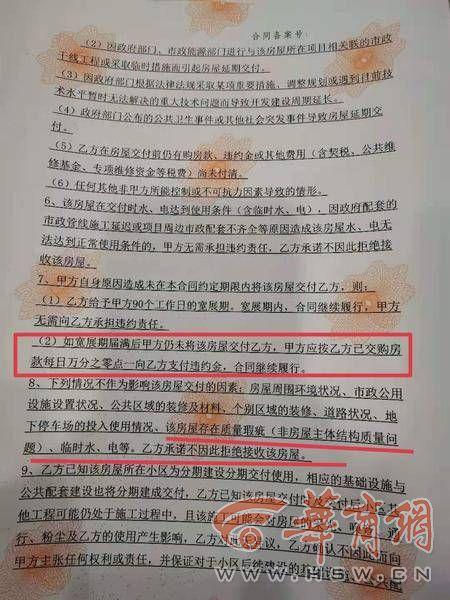 合同备案号：
（2）因政府部门、市政能源部门进行与该房屋所在项目相关联的市政
干线工程或采取临时措施而引起房屋延期交付。
（3）因政府部门根据法律法规采取某项要措施、调整规划或遇到付前技
术水平暂时无法解决的重大技术问题而导致开发建设周期延长。
（4）政府部门公布的公共卫生事件或其他社会突发事件导致房屋延期交
付。
（5）乙方在房屋交付前仍有购房款、违约金或其他费用（含契税、公共维
修基金、专项维修资金等税费）尚未付清。
（6）任何其他非甲方所能控制或不可抗力因素导致的情形。
6、该房屋在交付时水、电达到使用条件（含临时水、电），因政府配套的
市政管线施工延迟或项目周边市政配套不齐全等原因造成该房屋水、电无
法达到正常使用条件的，甲方无需承担违约责任，乙方承诺不因此拒绝接
收该房屋。
7、甲方自身原因造成未在本合同约定期限内将该房屋交付乙方，则：
（1）乙方给予甲方90个工作日的宽展期。宽展期内，合同继续履行，甲方
无需向乙方承担违约责任。
（2）如宽展期届满后甲方仍未将该房屋交付乙方，甲方应按乙方已交购房
款每日万分之零点一向乙方支付违约金，合同继续履行。
8、下列情况不作为影响该房屋交付的因素：房屋周围环境状况、市政公用
设施设置状况、公共区域的装修及材料、个别区域的装修、道路状况、地
下停车场的投入使用情况、该房屋存在质量瑕疵（非房屋主体结构质量问
题）、临时水、电等。乙方承诺不因此拒绝接收该房屋。
9、乙方已知该房屋所在小区为分期建设分期交付使用，相应的基础设施与
公共配套建设也将分期建成交付，乙方已知该房屋交付时及交付后小区其
他工程可能仍处于施工过程中，且该施工可能会对房屋的
行、粉尘及乙方的使用产生影响，乙方对此无异议，乙方确认不因此而向
甲方主张任何权利或责任，并保证对于小区后续建设的
华商网
WWW.HSW.CN